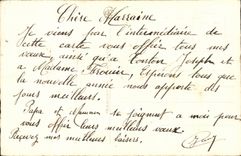 Chère Marraine
Je viens par l'intermédiaire de
cette carte vous offrir tous mes
vœux ainsi qu'à tonton Joseph et
à Madame espérons tous que
la nouvelle année nous apporte des
jours meilleurs.
Papa et maman se joignent à moi pour
vous offrir leurs meilleurs vœux
Recevez mes meilleurs baisers.